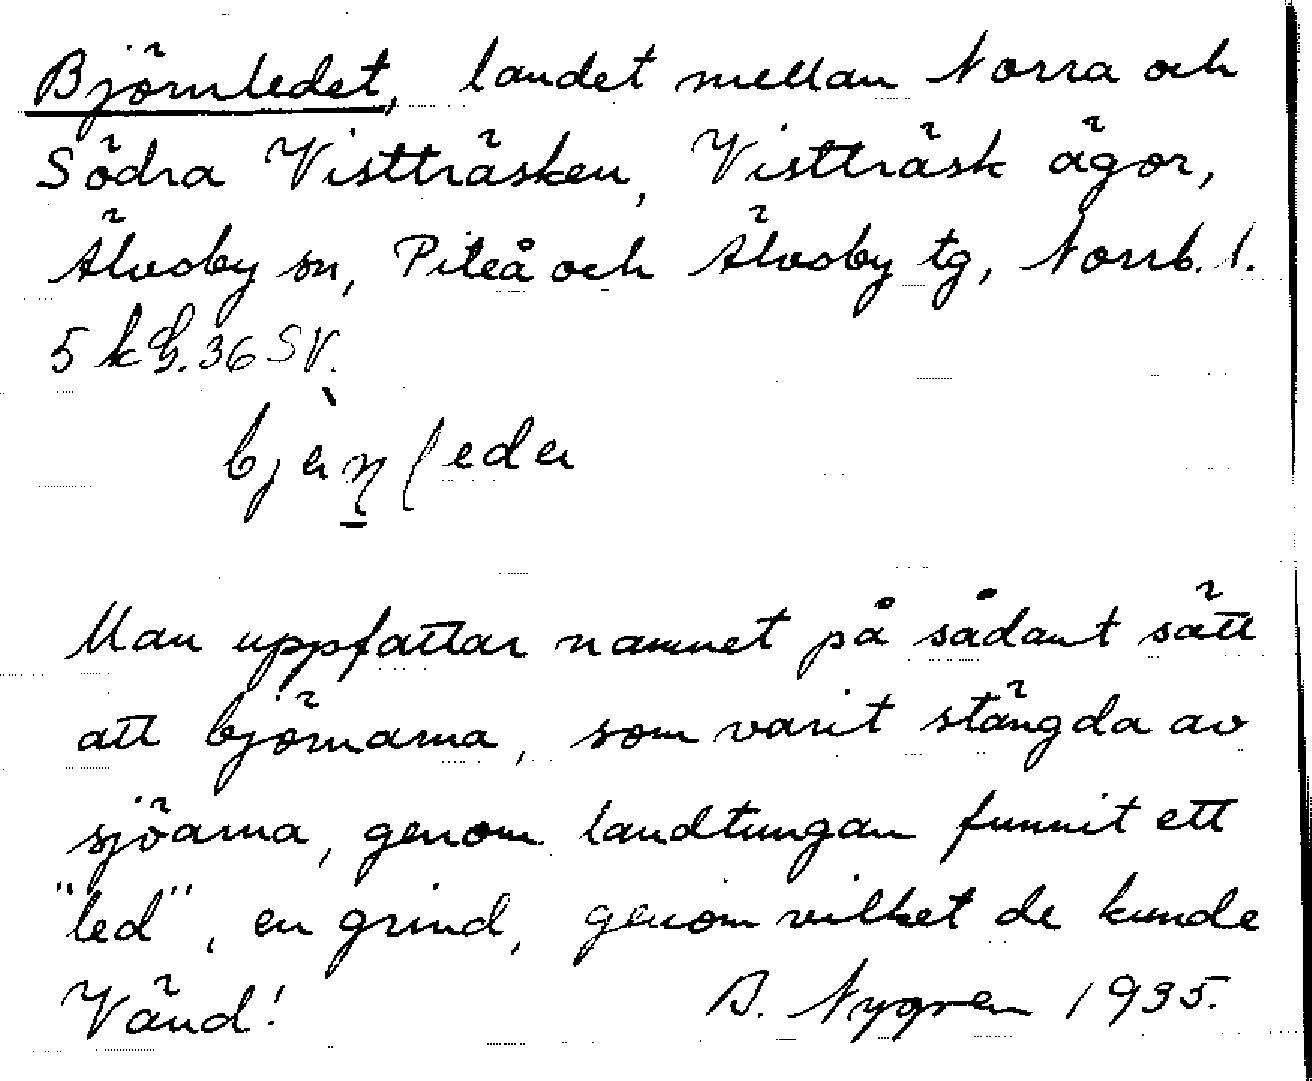 Björnledet, landet mellan Norra och
Södra Vistträsken, Vistträsk ägor,
Älvsby sn, Piteå och Älvsby tg, Norrb. l.
5 k 36 SV.
Man uppfattar namnet på sådant sätt
att björnarna, som varit stängda av
sjöarna, genom landtungan funnit ett
"led", en grind, genom vilket de kunde
Vänd! B. Nygren 1935.